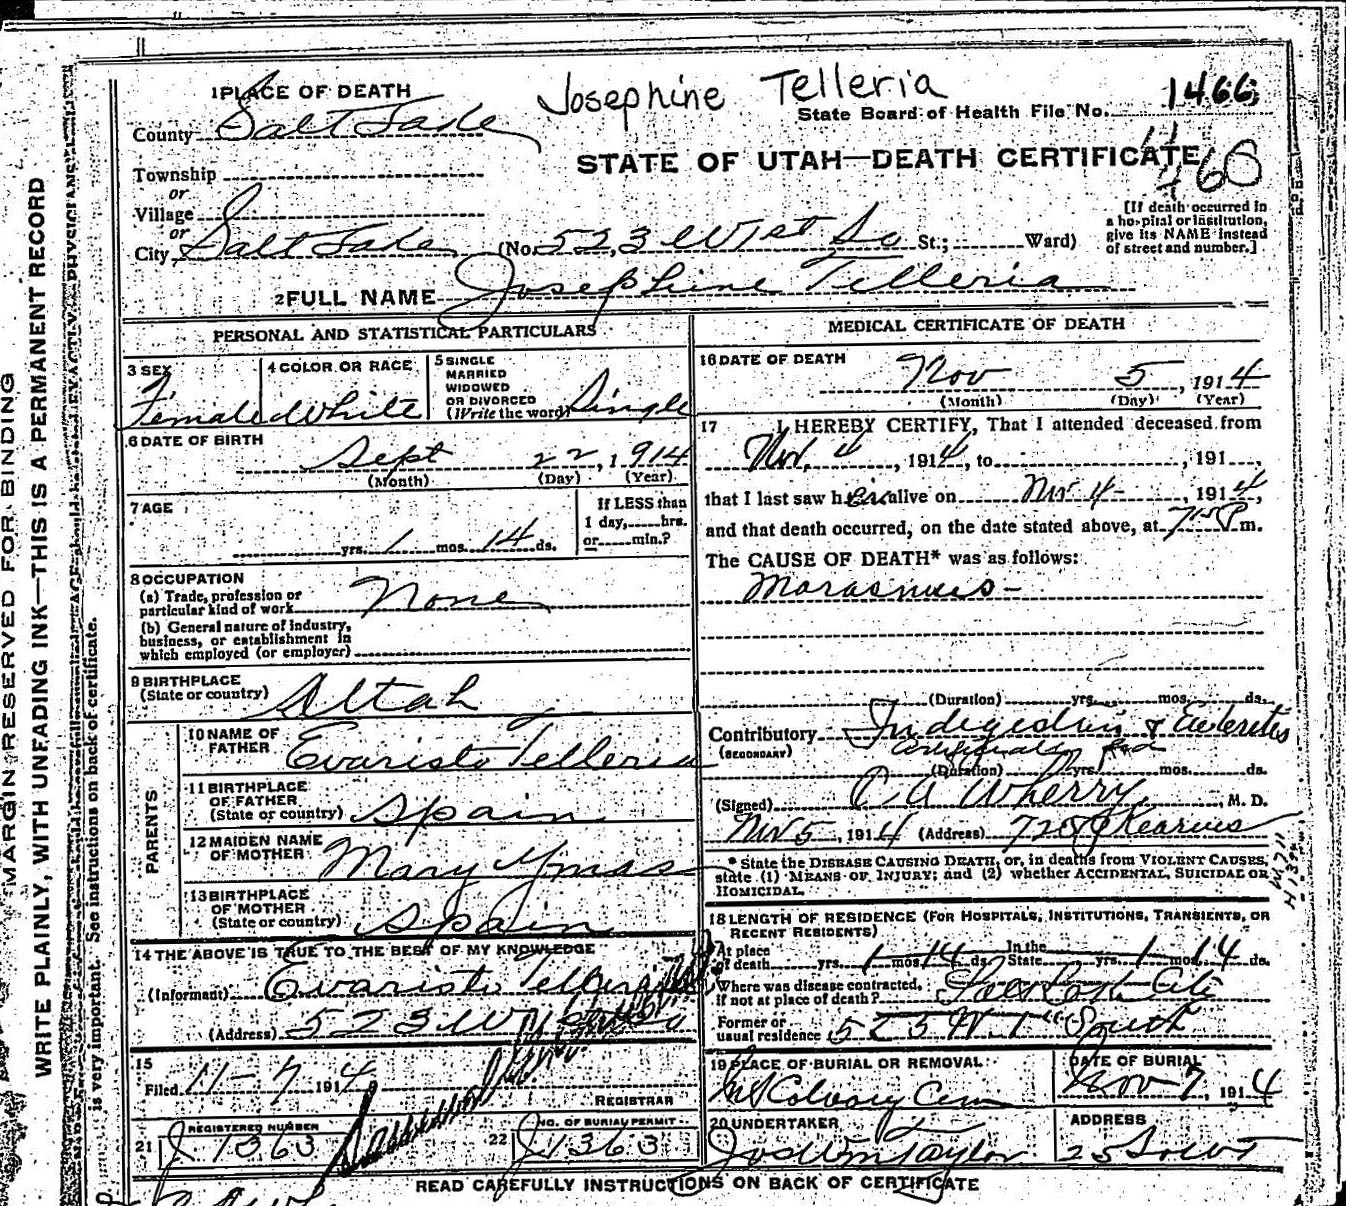 1 PLACE OF DEATH
Josephine Telleria
1466
County Salt Lake
State Board of Health File No.
STATE OF UTAH—DEATH CERTIFICATE
460
Township
or
Village
or
City Salt Lake (No. 523 W 1st So St.; Ward)
[If death occurred in a hospital or institution, give its NAME instead of street and number.]
2 FULL NAME Josephine Telleria
PERSONAL AND STATISTICAL PARTICULARS
3 SEX Female
4 COLOR OR RACE White
5 SINGLE MARRIED WIDOWED OR DIVORCED (Write the word) Single
6 DATE OF BIRTH
Sept 22, 1914
(Month) (Day) (Year)
7 AGE
yrs. 1 mos. 14 ds.
If LESS than 1 day, hrs. or min.?
8 OCCUPATION
(a) Trade, profession or particular kind of work None
(b) General nature of industry, business, or establishment in which employed (or employer)
9 BIRTHPLACE
(State or country) Utah
PARENTS
10 NAME OF FATHER Evaristo Telleria
11 BIRTHPLACE OF FATHER (State or country) Spain
12 MAIDEN NAME OF MOTHER Mary
13 BIRTHPLACE OF MOTHER (State or country) Spain
14 THE ABOVE IS TRUE TO THE BEST OF MY KNOWLEDGE
(Informant) Evaristo Telleria
(Address) 523 W
15
Filed 11-7 1914
REGISTRAR
21 REGISTERED NUMBER J 1363
22 NO. OF BURIAL PERMIT J 1363
MEDICAL CERTIFICATE OF DEATH
16 DATE OF DEATH
Nov 5, 1914
(Month) (Day) (Year)
17 I HEREBY CERTIFY, That I attended deceased from
Nov. 4, 1914, to , 191 ,
that I last saw her alive on Nov 4, 1914,
and that death occurred, on the date stated above, at 715 P m.
The CAUSE OF DEATH* was as follows:
Marasmus-
(Duration) yrs. mos. ds.
Contributory Indigestion & Enteritis
(SECONDARY) artificially fed
(Duration) yrs. mos. ds.
(Signed) Wherry, M. D.
Nov 5, 1914 (Address) 728 Kearns
* State the DISEASE CAUSING DEATH, or, in deaths from VIOLENT CAUSES, state (1) MEANS OF INJURY; and (2) whether ACCIDENTAL, SUICIDAL OR HOMICIDAL.
18 LENGTH OF RESIDENCE (FOR HOSPITALS, INSTITUTIONS, TRANSIENTS, OR RECENT RESIDENTS)
At place of death yrs. 1 mos. 14 ds. In the State yrs. 1 mos. 14 ds.
Where was disease contracted, if not at place of death? Salt Lake City
Former or usual residence 523 W. 1st South
19 PLACE OF BURIAL OR REMOVAL
Mt Calvary Cem
DATE OF BURIAL
Nov 7, 1914
20 UNDERTAKER
Jos Wm Taylor
ADDRESS
25 So W T
READ CAREFULLY INSTRUCTIONS ON BACK OF CERTIFICATE
MARGIN RESERVED FOR BINDING
WRITE PLAINLY, WITH UNFADING INK—THIS IS A PERMANENT RECORD
is very important. See instructions on back of certificate.